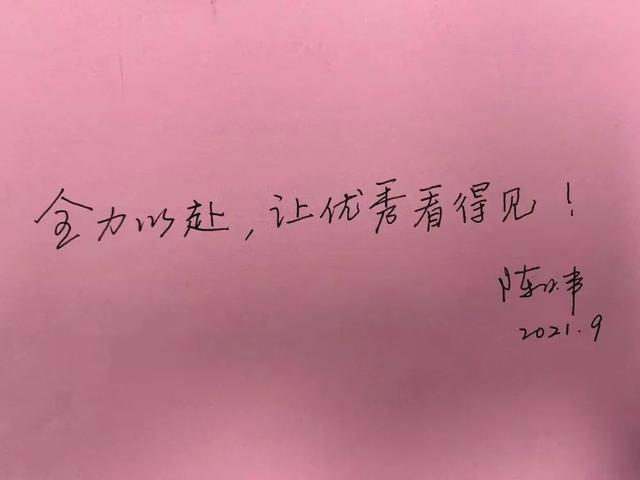 全力以赴,让优秀看得见!
陈
2021.9